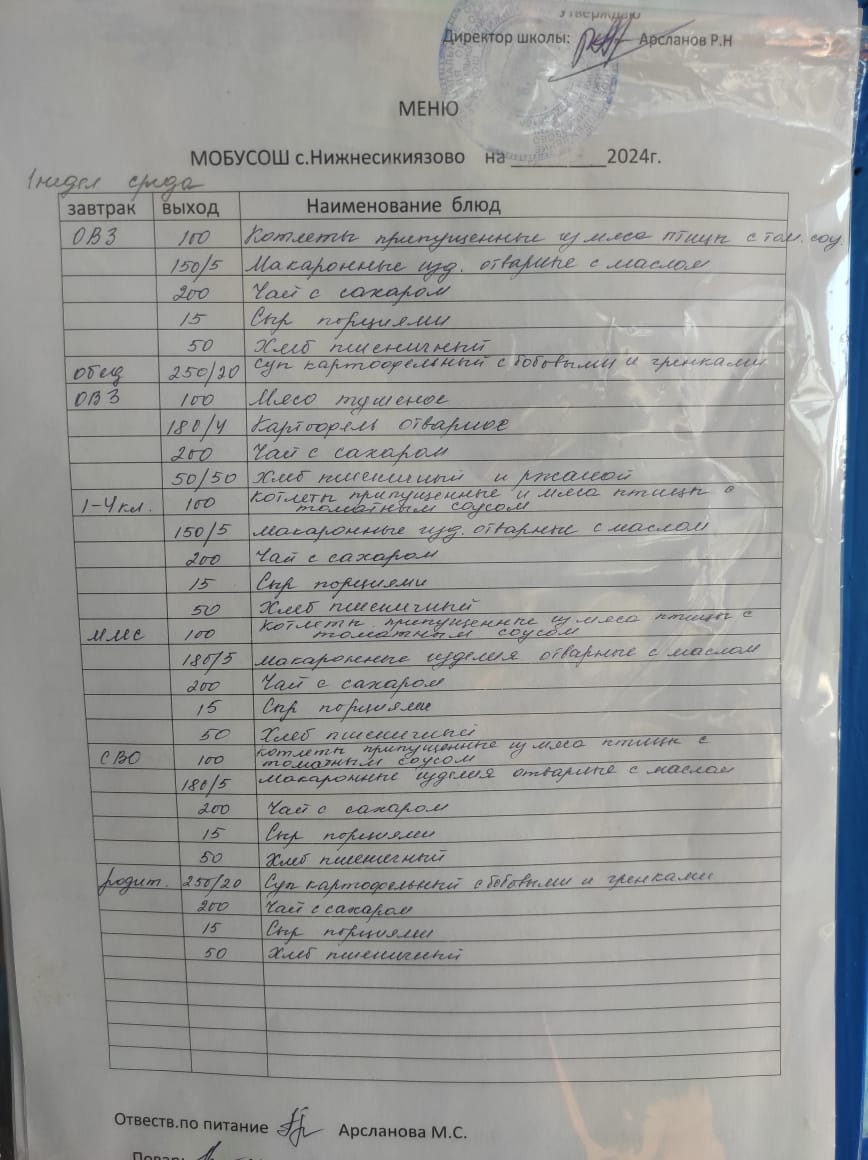 Утверждаю
Директор школы: Арсланов Р.Н
МЕНЮ
МОБУСОШ с.Нижнесикиязово на __________2024г.
1 недел среда
завтрак выход Наименование блюд
ОВЗ 100 Котлеты припущенные из мяса птицы с том. соу.
150/5 Макаронные изд. отварные с маслом
200 Чай с сахаром
15 Сыр порциями
50 Хлеб пшеничный
обед 250/20 Суп картофельный с бобовыми и гренками
ОВЗ 100 Мясо тушеное
180/4 Картофель отварное
200 Чай с сахаром
50/50 Хлеб пшеничный и ржаной
1-4 кл. 100 Котлеты припущенные и мяса птицы с
томатным соусом
150/5 Макаронные изд. отварные с маслом
200 Чай с сахаром
15 Сыр порциями
50 Хлеб пшеничный
ММС 100 Котлеты припущенные из мяса птицы с
томатным соусом
180/5 Макаронные изделия отварные с маслом
200 Чай с сахаром
15 Сыр порциями
50 Хлеб пшеничный
СВО 100 Котлеты припущенные из мяса птицы с
томатным соусом
180/5 Макаронные изделия отварные с маслом
200 Чай с сахаром
15 Сыр порциями
50 Хлеб пшеничный
родит. 250/20 Суп картофельный с бобовыми и гренками
200 Чай с сахаром
15 Сыр порциями
50 Хлеб пшеничный
Отвеств.по питание Арсланова М.С.
Повар: